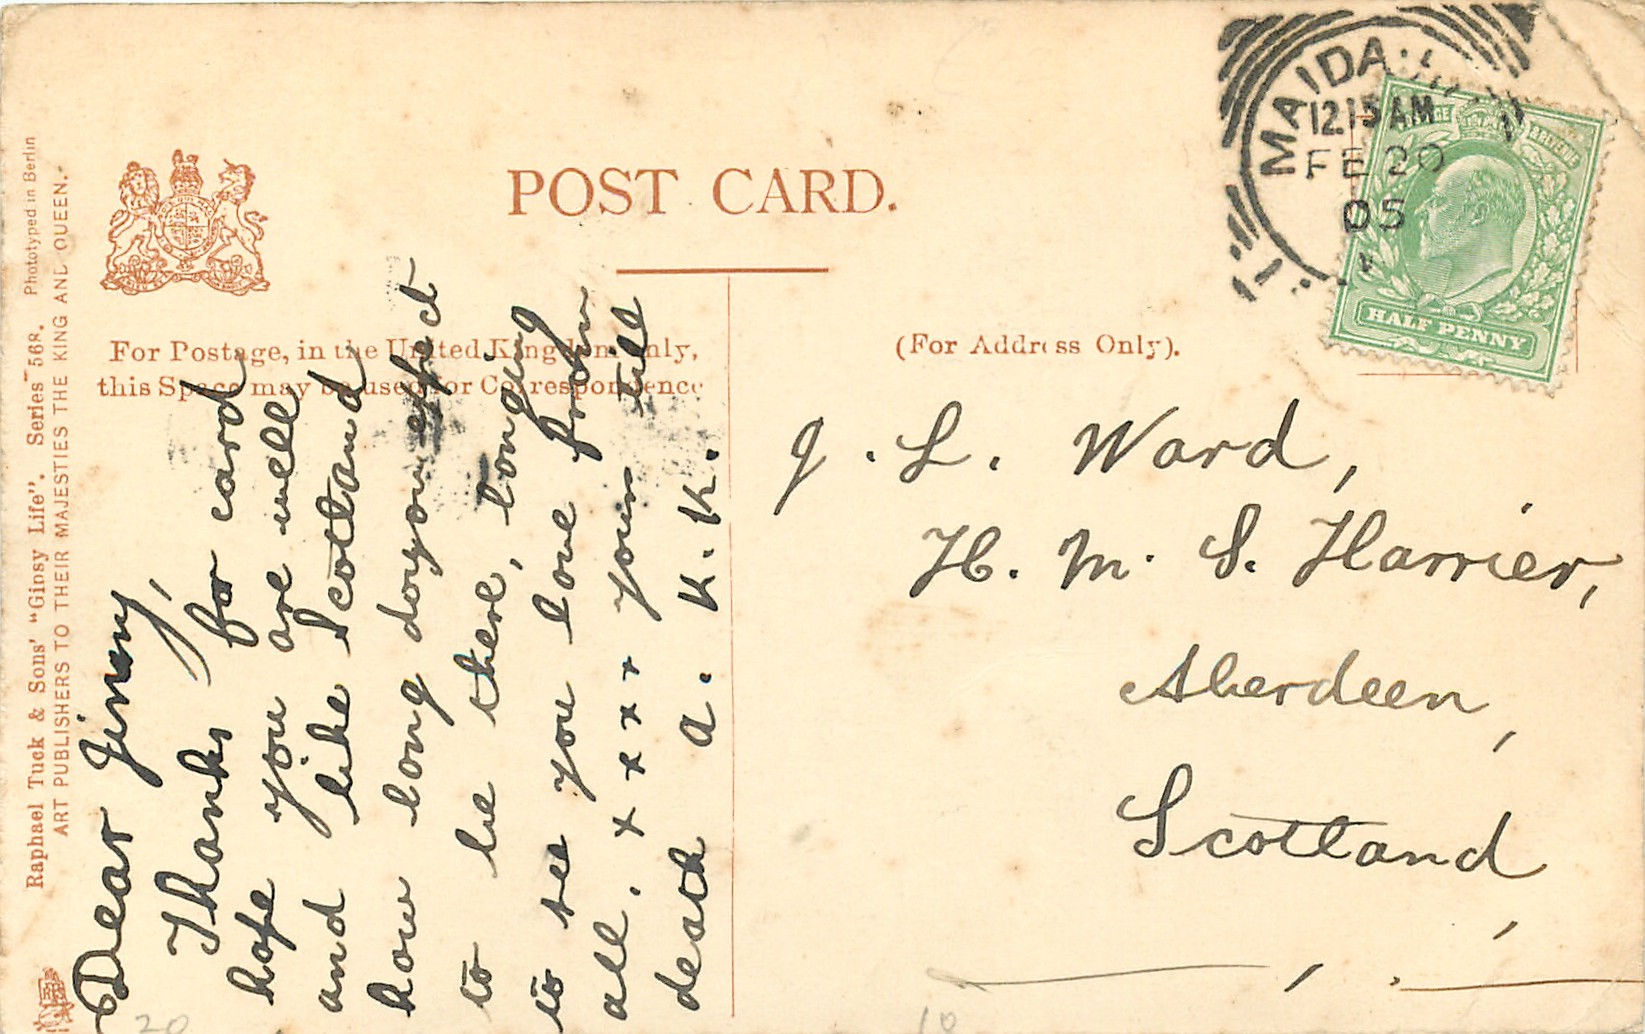 POST CARD.
For Postage, in the United Kingdom only,
this Space may be used for Correspondence
(For Address Only).
MAIDA
12.15 AM
FE 20
05
POSTAGE & REVENUE
HALF PENNY
Raphael Tuck & Sons' "Gipsy Life". Series 568. Phototyped in Berlin
ART PUBLISHERS TO THEIR MAJESTIES THE KING AND QUEEN.
Dear Jimmy,
Thanks for card
hope you are well
and like Scotland
how long do you expect
to be there, longing
to see you love from
all. x x x x yours till
death A. K. K.
J. L. Ward,
H. M. S. Harrier,
Aberdeen,
Scotland,
20
10